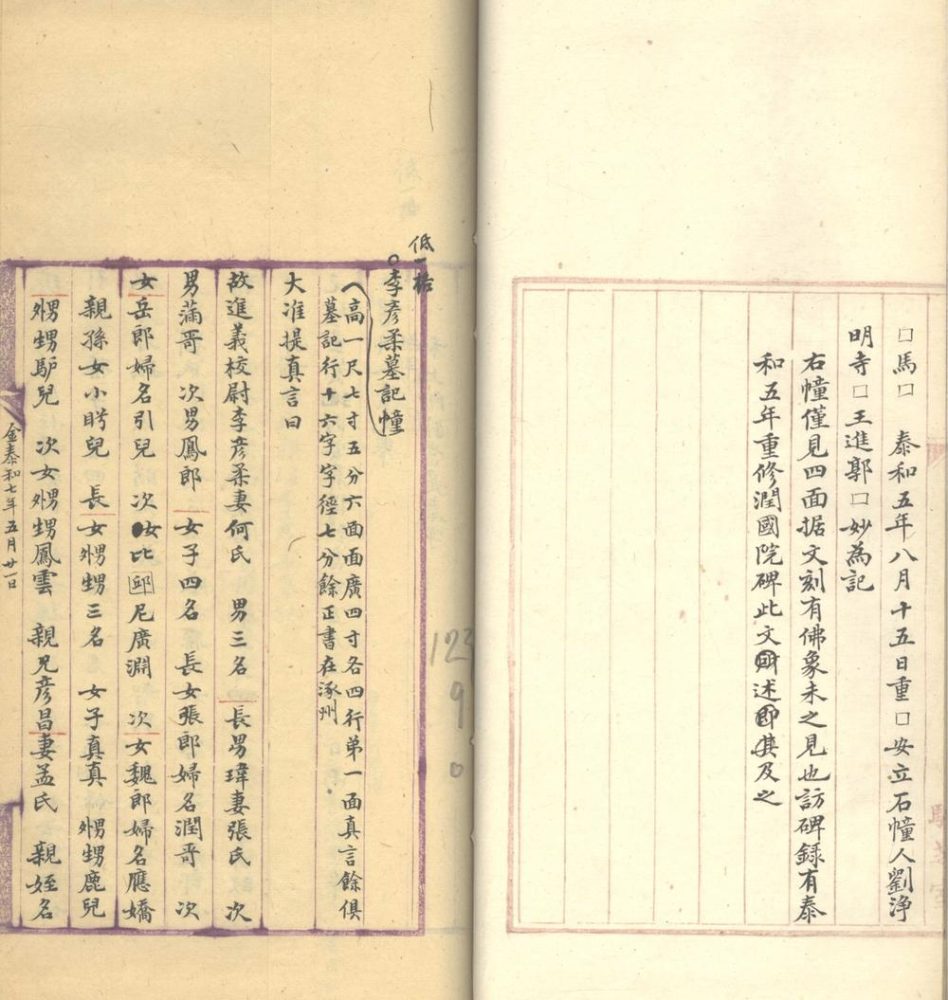 □馬□ 泰和五年八月十五日重□安立石幢人劉淨
明寺□王進郭□妙為記
右幢僅見四面据文刻有佛象未之見也訪碑錄有泰
和五年重修潤國院碑此文述其及之
低一格
○李彥柔墓記幢
高一尺七寸五分六面面廣四寸各四行第一面真言餘俱
墓記行十六字字徑七分餘正書在涿州
大准提真言曰
故進義校尉李彥柔妻何氏 男三名 長男瑋妻張氏 次
男蒲哥 次男鳳郎 女子四名 長女張郎婦名潤哥 次
女岳郎婦名引兒 次女比邱尼廣淵 次女魏郎婦名應嬌
親孫女小兒 長女外甥三名 女子真真 甥甥鹿兒
甥甥馿兒 次女甥甥鳳雲 親兄彥昌妻孟氏 親姪名
金泰和七年五月廿一日
123
9
0